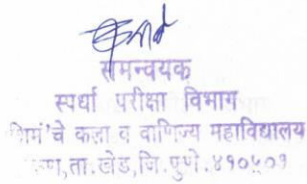 समन्वयक
स्पर्धा परीक्षा विभाग
चे कला व वाणिज्य महाविद्यालय
ता. खेड, जि. पुणे. ४१०५०१